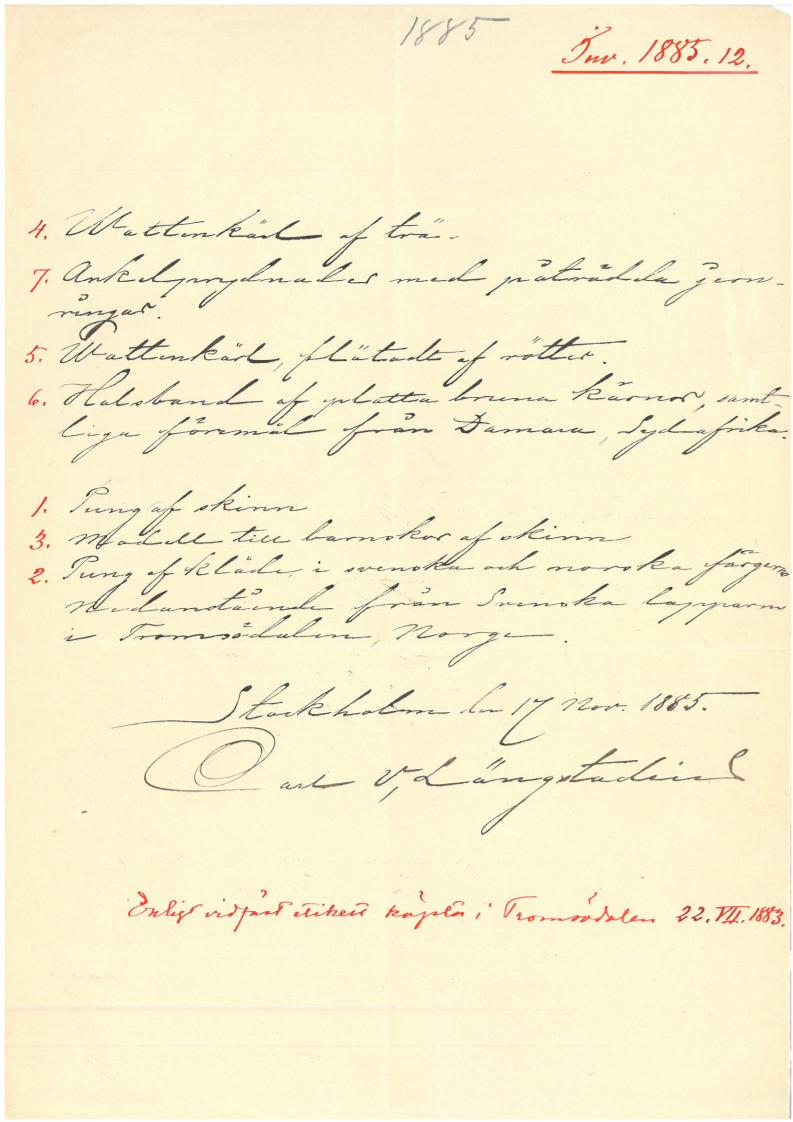 1885
Inv. 1885.12.
4. Wattenkärl af trä.
7. Ankelprydnader med påträdda jern-
ringar.
5. Wattenkärl, flätadt af rötter.
6. Halsband af platta bruna kärnor, samt-
liga föremål från Damara, Sydafrika.
1. Pung af skinn
3. Modell till barnskor af skinn
2. Pung af kläde i svenska och norska färgerna
Nedanstående från Svenska lapparne
i Tromsödalen, Norge.
Stockholm den 17 Nov. 1885.
Carl V. Långstadius
Enligt vidfäst etikett köpta i Tromsödalen 22.VII.1883.